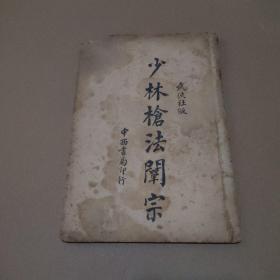 武俠社版
少林槍法闡宗
中西書局印行